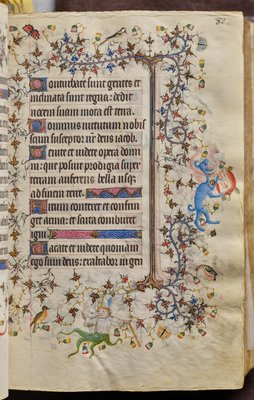 82.
Conturbate sunt gentes et
inclinata sunt regna: dedit
vocem suam mota est terra.
Dominus virtutum nobis
cum susceptor nr deus iacob.
Venite et videte opera domi
ni: que posuit prodigia super
terram auferens bella usq;
ad finem terre.
Arcum conteret et confrin
get arma: et scuta comburet
igni.
Vacate et videte quoniam
ego sum deus: exaltabor in gen